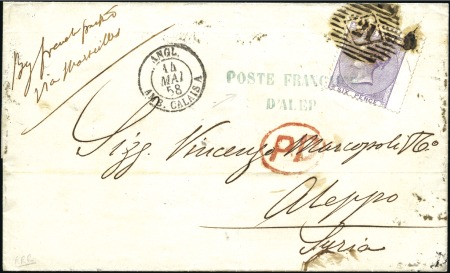 By french packet
Via Marseilles
ANGL.
14
MAI
58
AMB. CALAIS A
POSTE FRANÇAISE
D'ALEP
SIX PENCE
PD
Sigg. Vincenzo Marcopoli & Co
Aleppo
Syria